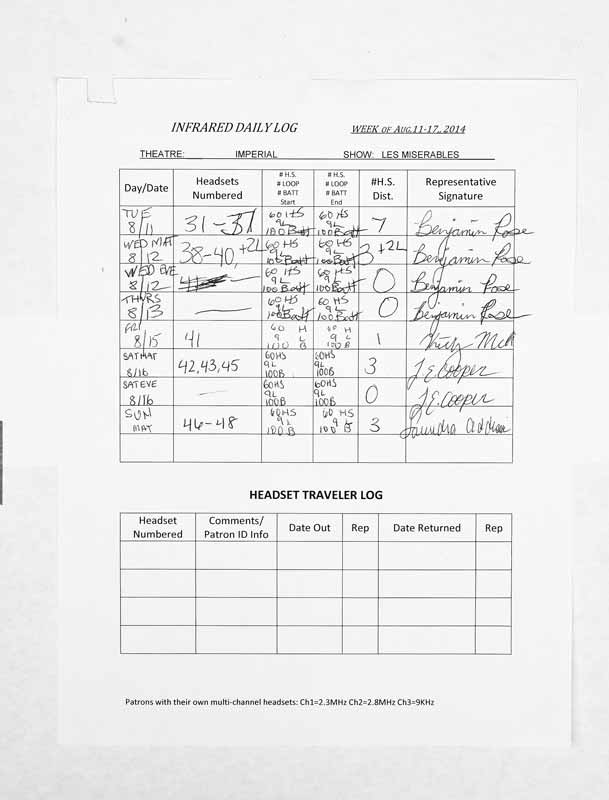 INFRARED DAILY LOG WEEK OF AUG.11-17, 2014
THEATRE: IMPERIAL SHOW: LES MISERABLES
Day/Date Headsets Numbered # H.S. # LOOP # BATT Start # H.S. # LOOP # BATT End #H.S. Dist. Representative Signature
TUE 8/11 31-37 60 HS 9L 100 Batt 60 HS 9L 100 Batt 7 Benjamin Rose
WED MAT 8/12 38-40, +2L 60 HS 9L 100 Batt 60 HS 9L 100 Batt 3 +2L Benjamin Rose
WED EVE 8/12 60 HS 9L 100 Batt 60 HS 9L 100 Batt 0 Benjamin Rose
THURS 8/13 — 60 HS 9L 100 Batt 60 HS 9L 100 Batt 0 Benjamin Rose
FRI 8/15 41 60 H 9 L 100 B 60 H 9 L 100 B 1
SAT MAT 8/16 42,43,45 60HS 9L 100B 60HS 9L 100B 3 J.E. Cooper
SAT EVE 8/16 — 60HS 9L 100B 60HS 9L 100B 0 J.E. Cooper
SUN MAT 46-48 60HS 9L 100B 60 HS 9L 100 B 3
HEADSET TRAVELER LOG
Headset Numbered Comments/ Patron ID Info Date Out Rep Date Returned Rep
Patrons with their own multi-channel headsets: Ch1=2.3MHz Ch2=2.8MHz Ch3=9KHz